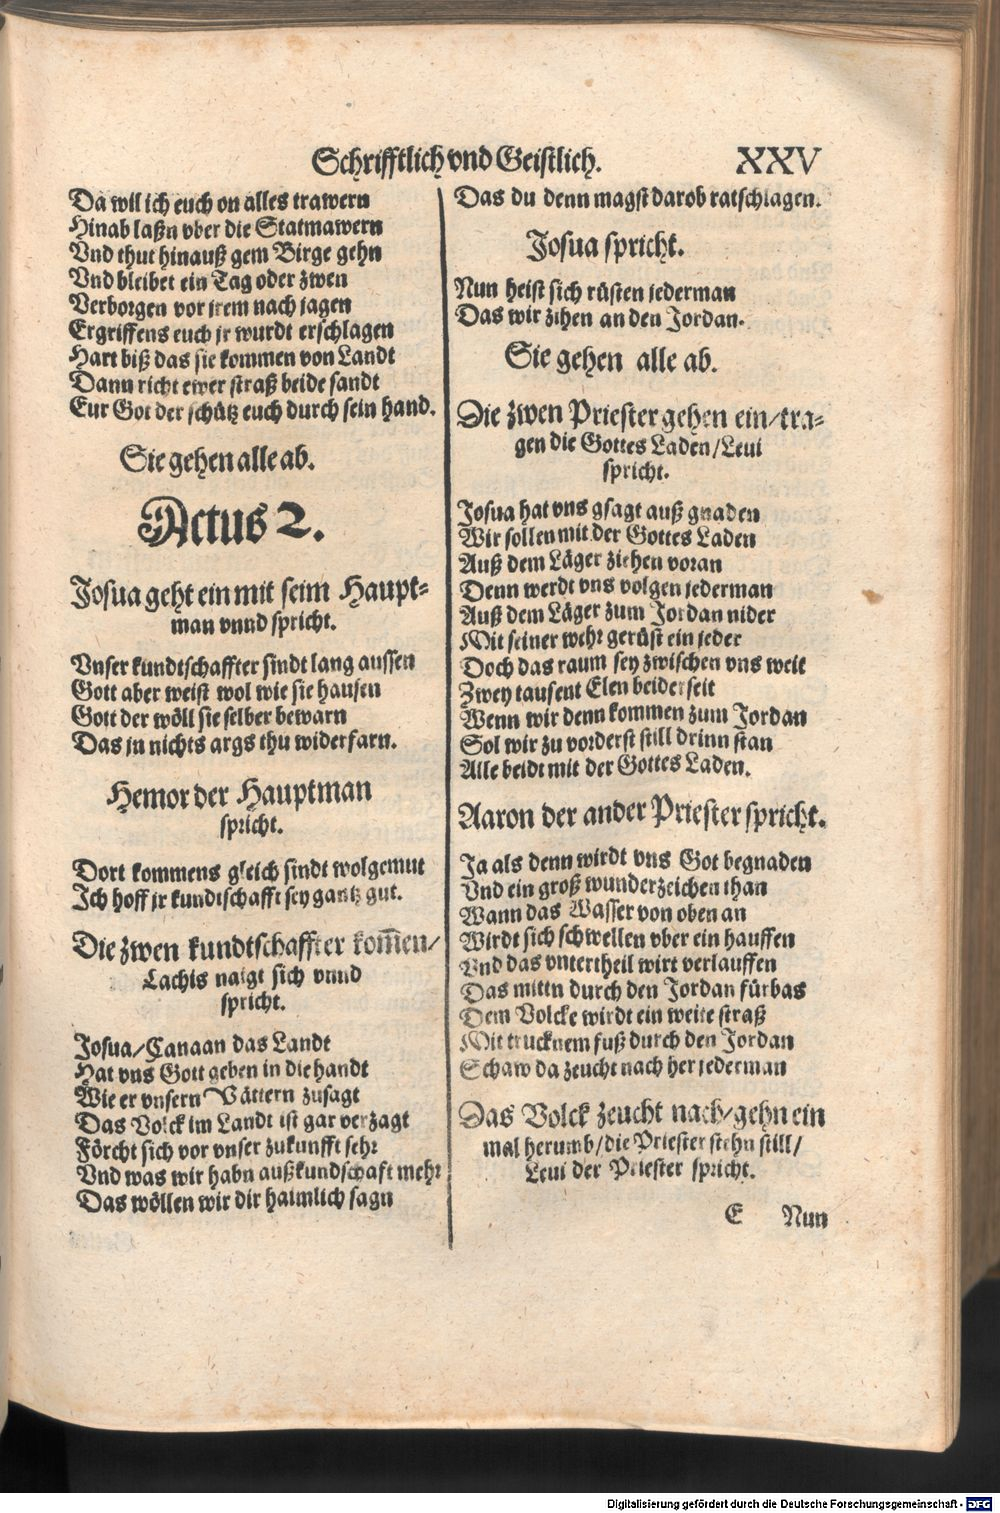 Schrifftlich vnd Geistlich.
XXV
Da wil ich euch on alles trawern
Hinab laßn vber die Statmawern
Vnd thut hinauß gem Birge gehn
Vnd bleibet ein Tag oder zwen
Verborgen vor jrem nach jagen
Ergriffens euch jr wurdt erschlagen
Hart biß das sie kommen von Landt
Dann richt ewer straß beide sandt
Eur Got der schütz euch durch sein hand.
Sie gehen alle ab.
Actus 2.
Josua geht ein mit seim Haupt-
man vnnd spricht.
Vnser kundtschaffter sindt lang aussen
Gott aber weist wol wie sie hausen
Gott der wöll sie selber bewarn
Das jn nichts args thu widerfarn.
Hemor der Hauptman
spricht.
Dort kommens gleich sindt wolgemut
Ich hoff jr kundtschafft sey gantz gut.
Die zwen kundtschaffter kom̄en/
Lachis naigt sich vnnd
spricht.
Josua/Canaan das Landt
Hat vns Gott geben in die handt
Wie er vnsern Vättern zusagt
Das Volck im Landt ist gar verzagt
Förcht sich vor vnser zukunfft sehr
Vnd was wir habn außkundschaft mehr
Das wöllen wir dir haimlich sagn
Das du denn magst darob ratschlagen.
Josua spricht.
Nun heist sich rüsten jederman
Das wir zihen an den Jordan.
Sie gehen alle ab.
Die zwen Priester gehen ein/tra-
gen die Gottes Laden/Leui
spricht.
Josua hat vns gsagt auß gnaden
Wir sollen mit der Gottes Laden
Auß dem Läger ziehen voran
Denn werdt vns volgen jederman
Auß dem Läger zum Jordan nider
Mit seiner wehr gerüst ein jeder
Doch das raum sey zwischen vns weit
Zwey tausent Elen beiderseit
Wenn wir denn kommen zum Jordan
Sol wir zu vorderst still drinn stan
Alle beidt mit der Gottes Laden.
Aaron der ander Priester spricht.
Ja als denn wirdt vns Got begnaden
Vnd ein groß wunderzeichen than
Wann das Wasser von oben an
Wirdt sich schwellen vber ein hauffen
Vnd das vntertheil wirt verlauffen
Das mittn durch den Jordan fürbas
Dem Volcke wirdt ein weite straß
Mit trucknem fuß durch den Jordan
Schaw da zeucht nach her jederman
Das Volck zeucht nach/gehn ein
mal herumb/die Priester stehn still/
Leui der Priester spricht.
E Nun
Digitalisierung gefördert durch die Deutsche Forschungsgemeinschaft - DFG